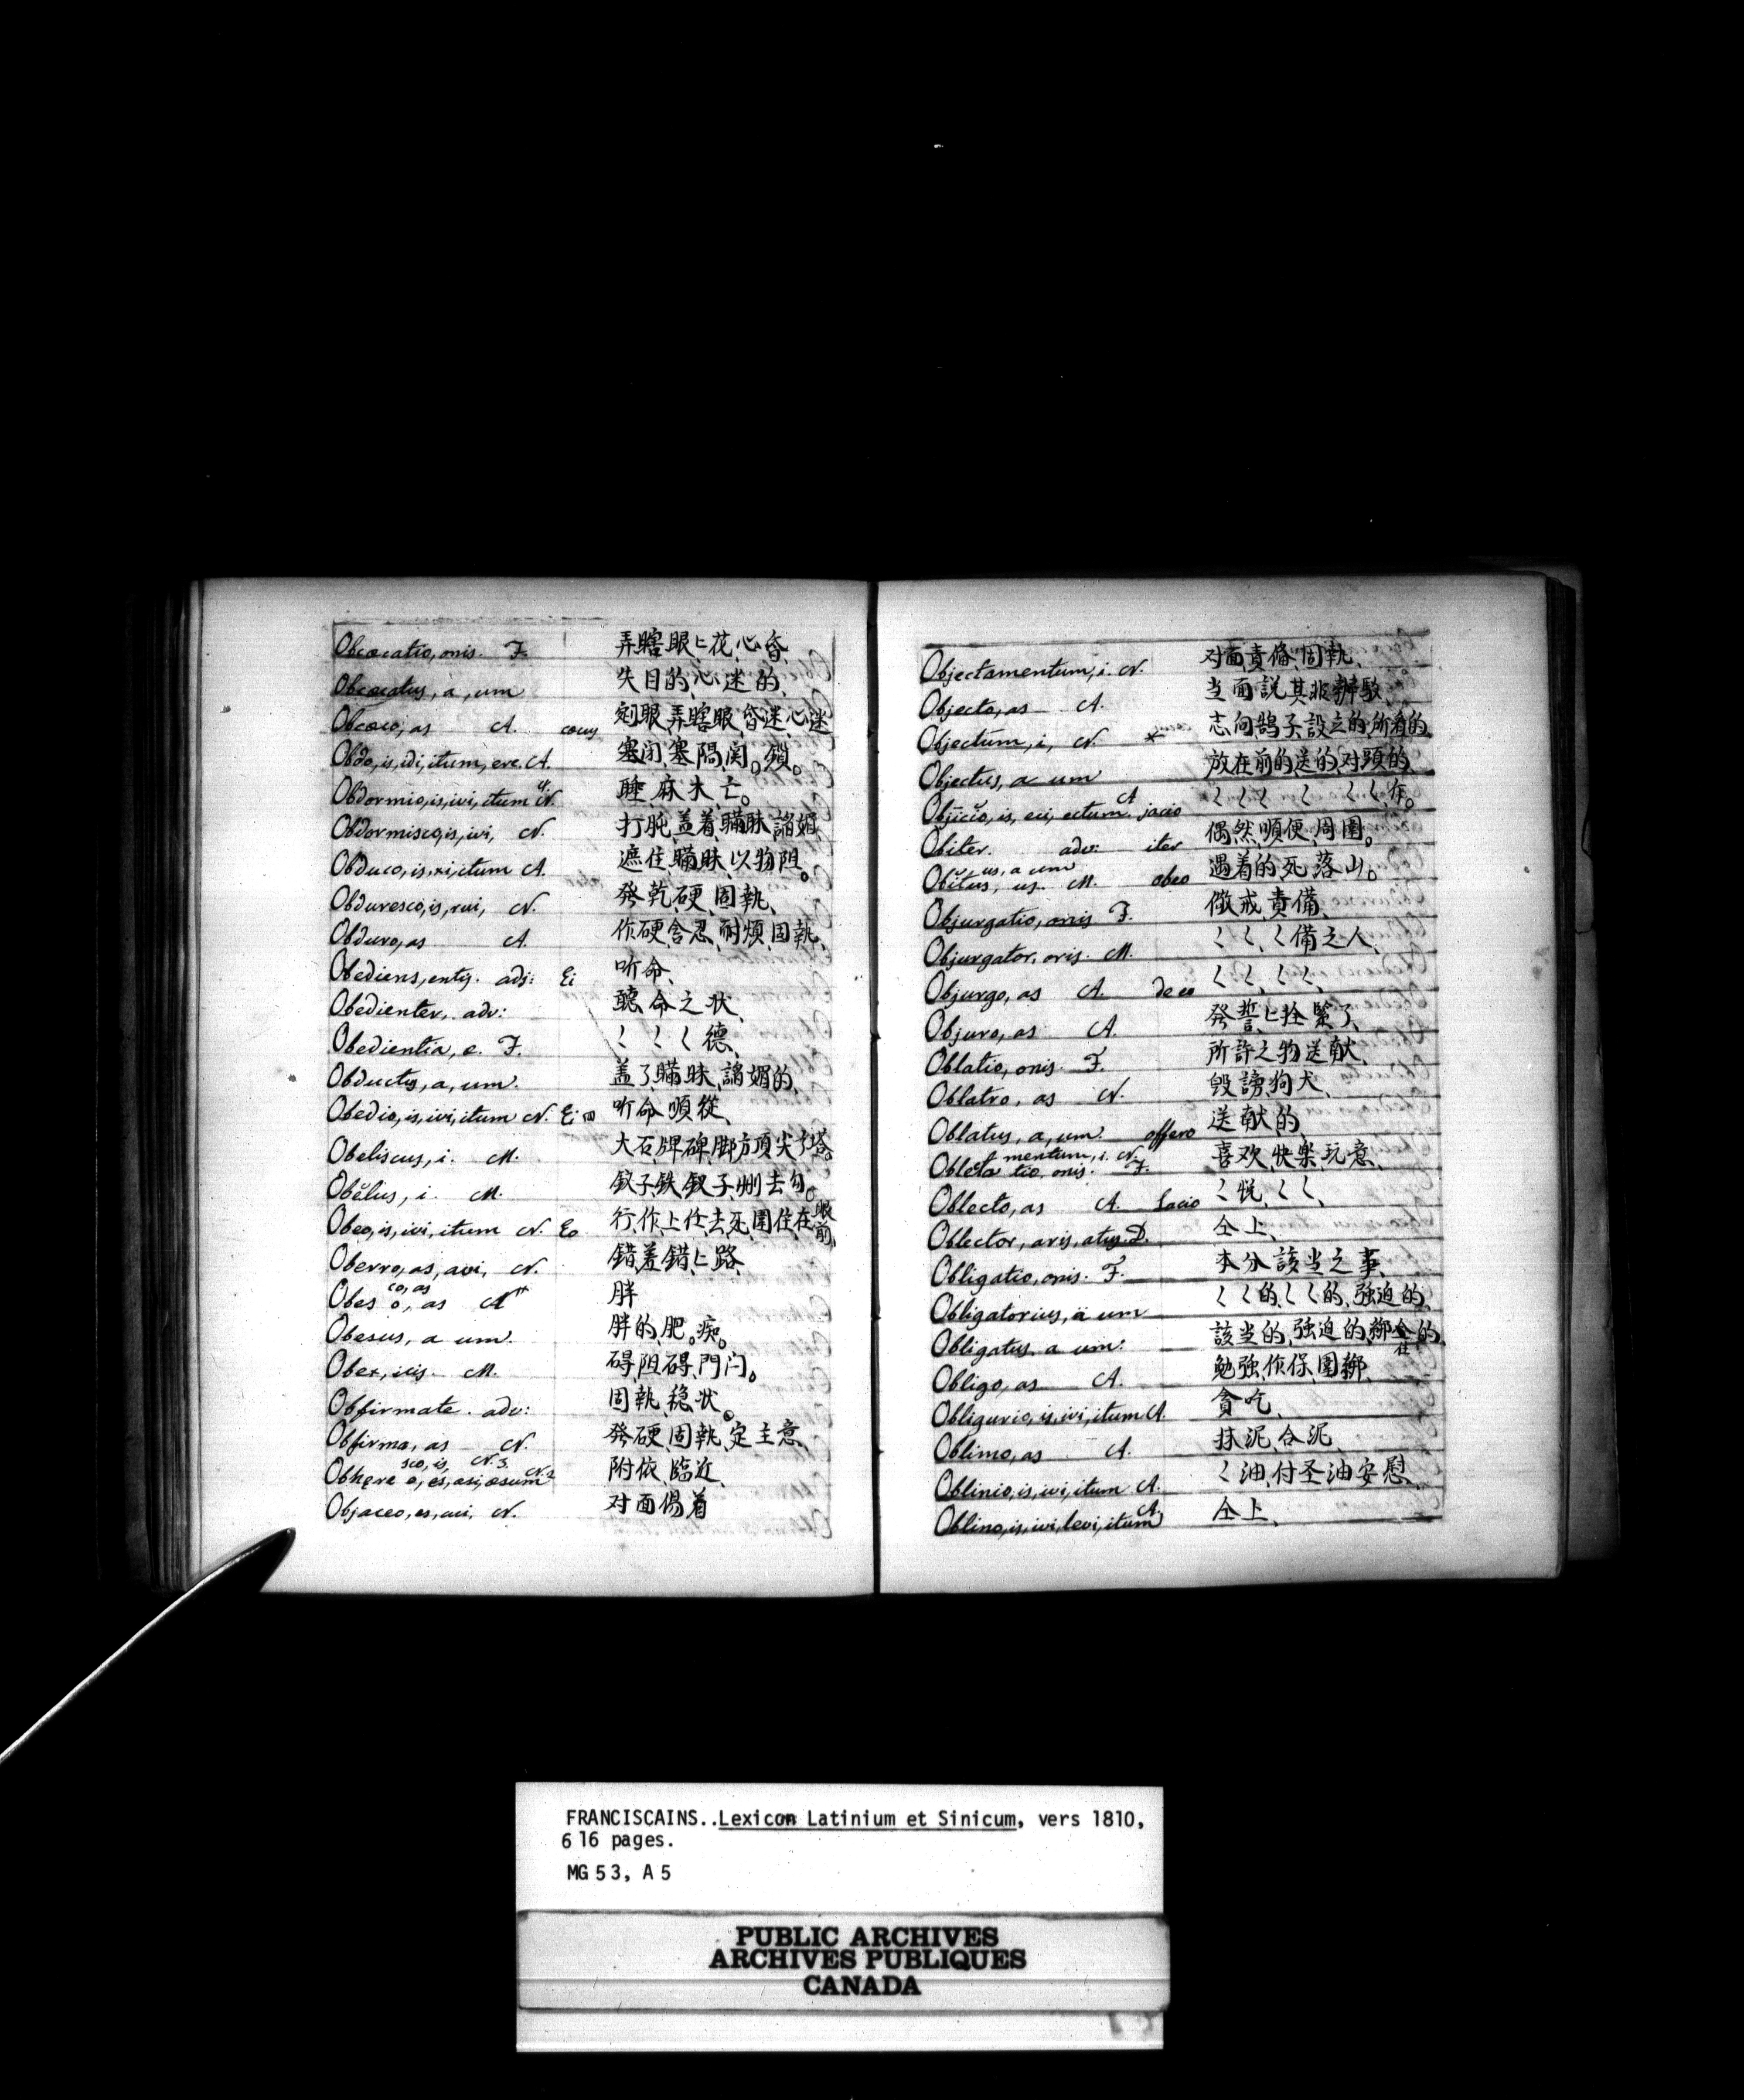 Obcæcatio, onis. F. 弄瞎眼匕花、心昏、
Obcæcatus, a, um 失目的、心迷的、
Obcæco, as A. 剜眼、弄瞎眼、昏迷、心迷
Obdo, is, idi, itum, ere. A. 塞闭、塞隔、関。鎖。
Obdormio, is, ivi, itum N. 睡、麻木、亡。
Obdormisco, is, ivi, N. 打肫、盖着、瞞昧、謟媚
Obduco, is, xi, ctum A. 遮住、瞞昧、以物阻。
Obduresco, is, rui, N. 發乾、硬、固執、
Obduro, as A. 作硬、含忍、耐煩、固執、
Obediens, entis. adj: Ei 听命、
Obedienter, adv: 聽命之状、
Obedientia, e. F. く く く 德、
Obductus, a, um. 盖了、瞞昧、謟媚的、
Obedio, is, ivi, itum N. Ei 听命、順從、
Obeliscus, i. M. 大石牌、碑、脚方頂尖了塔。
Obĕlus, i. M. 釵子、鉄釵子、刪去句。
Obeo, is, ivi, itum N. Eo 行、作、上仕、去、死、圍住、在眼前、
Oberro, as, avi, N. 錯差、錯匕路、
Obes co, as o, as A 胖
Obesus, a um. 胖的、肥。痴。
Obex, icis. M. 碍、阻碍、門闩。
Obfirmate. adv: 固執、稳状。
Obfirmo, as N. 發硬、固執、定主意、
Obhere sco, is, N. 3. o, es, esi, esum N. 2 附依、臨近、
Objaceo, es, cui, N. 对面㑥着
Objectamentum, i. N. 对面責俻、固執、
Objecto, as A. 当面説其非、辦駁、
Objectum, i, N. * 志向、鵠子、設立的、所看的、
Objectus, a um 放在前的、送的、对頭的、
Objicio, is, eci, ectum. A jacio く く く く く く 作。
Obiter. adv: iter 偶然、順便、周圍。
Obĭtus, us, a um us. M. obeo 遇着的、死、落山。
Objurgatio, onis F. 儆戒、責備、
Objurgator, oris. M. く く、く 備之人、
Objurgo, as A. く く、く く、
Objuro, as A. 發誓、匕拴緊了、
Oblatio, onis. F. 所許之物、送献、
Oblatro, as N. 毁謗、狗犬、
Oblatus, a, um. offero 送献的、
Oblecta mentum, i. N. tio, onis. F. 喜欢、快樂、玩意、
Oblecto, as A. Lacio く 悦、く く、
Oblector, aris, atus. D. 仝上、
Obligatio, onis. F. 本分、該当之事、
Obligatorius, a um く く 的、く く 的、强迫的、
Obligatus, a um. 該当的、强迫的、綁住的、
Obligo, as A. 勉強、作保、圍綁、
Obligurio, is, ivi, itum A. 貪吃、
Oblimo, as A. 抹泥、合泥、
Oblinio, is, ivi, itum A. く 油、付圣油、安慰、
Oblino, is, ivi, levi, itum A. 仝上、
FRANCISCAINS..Lexicon Latinium et Sinicum, vers 1810,
616 pages.
MG 53, A 5
PUBLIC ARCHIVES
ARCHIVES PUBLIQUES
CANADA